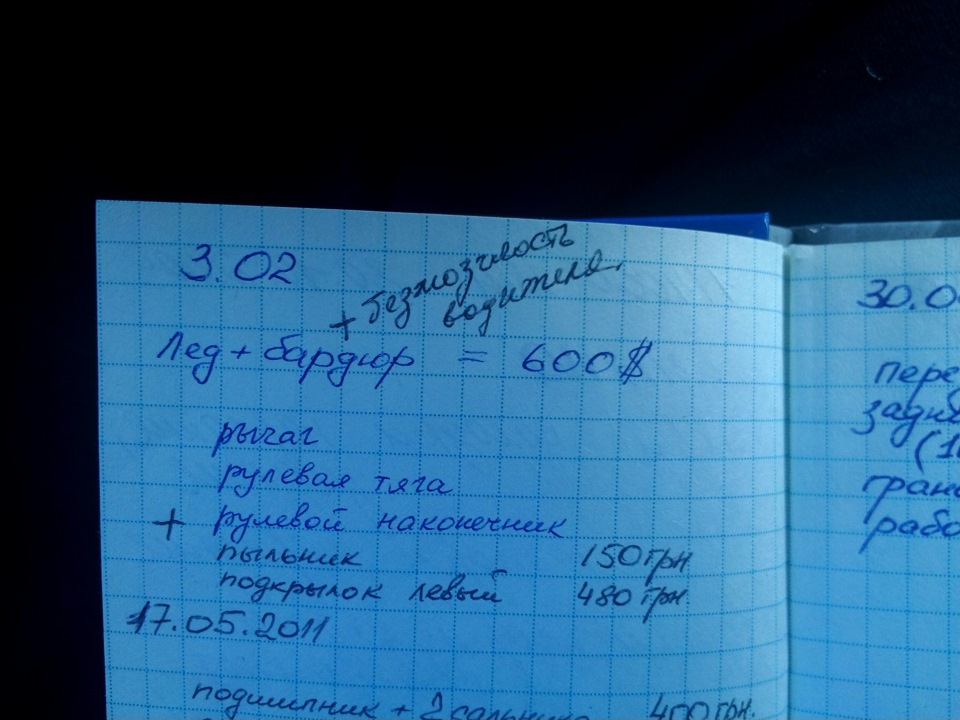 3.02
+ безмозчивость
водителя.
Лед + бардюр = 600$
рычаг
рулевая тяга
+ рулевой наконечник
пыльник 150 грн
подкрылок левый 480 грн
17.05.2011
подшипник + 2 сальника 400 грн.
30.0
пере
задни
(1
тран
рабо